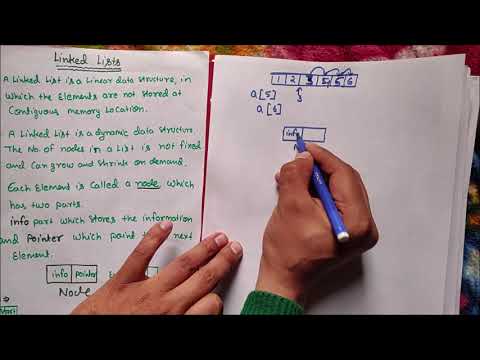 Linked Lists
A Linked List is a Linear data structure, in
which the Elements are not stored at
Contiguous memory Location.
A Linked List is a dynamic data structure.
The No. of nodes in a List is not fixed
and Can grow and shrink on demand.
Each Element is Called a node which
has two parts.
info part which stores the information
and Pointer which point next
Element.
info pointer
Node
1 2 3 5 5 6
3
a[5]
a[6]
info